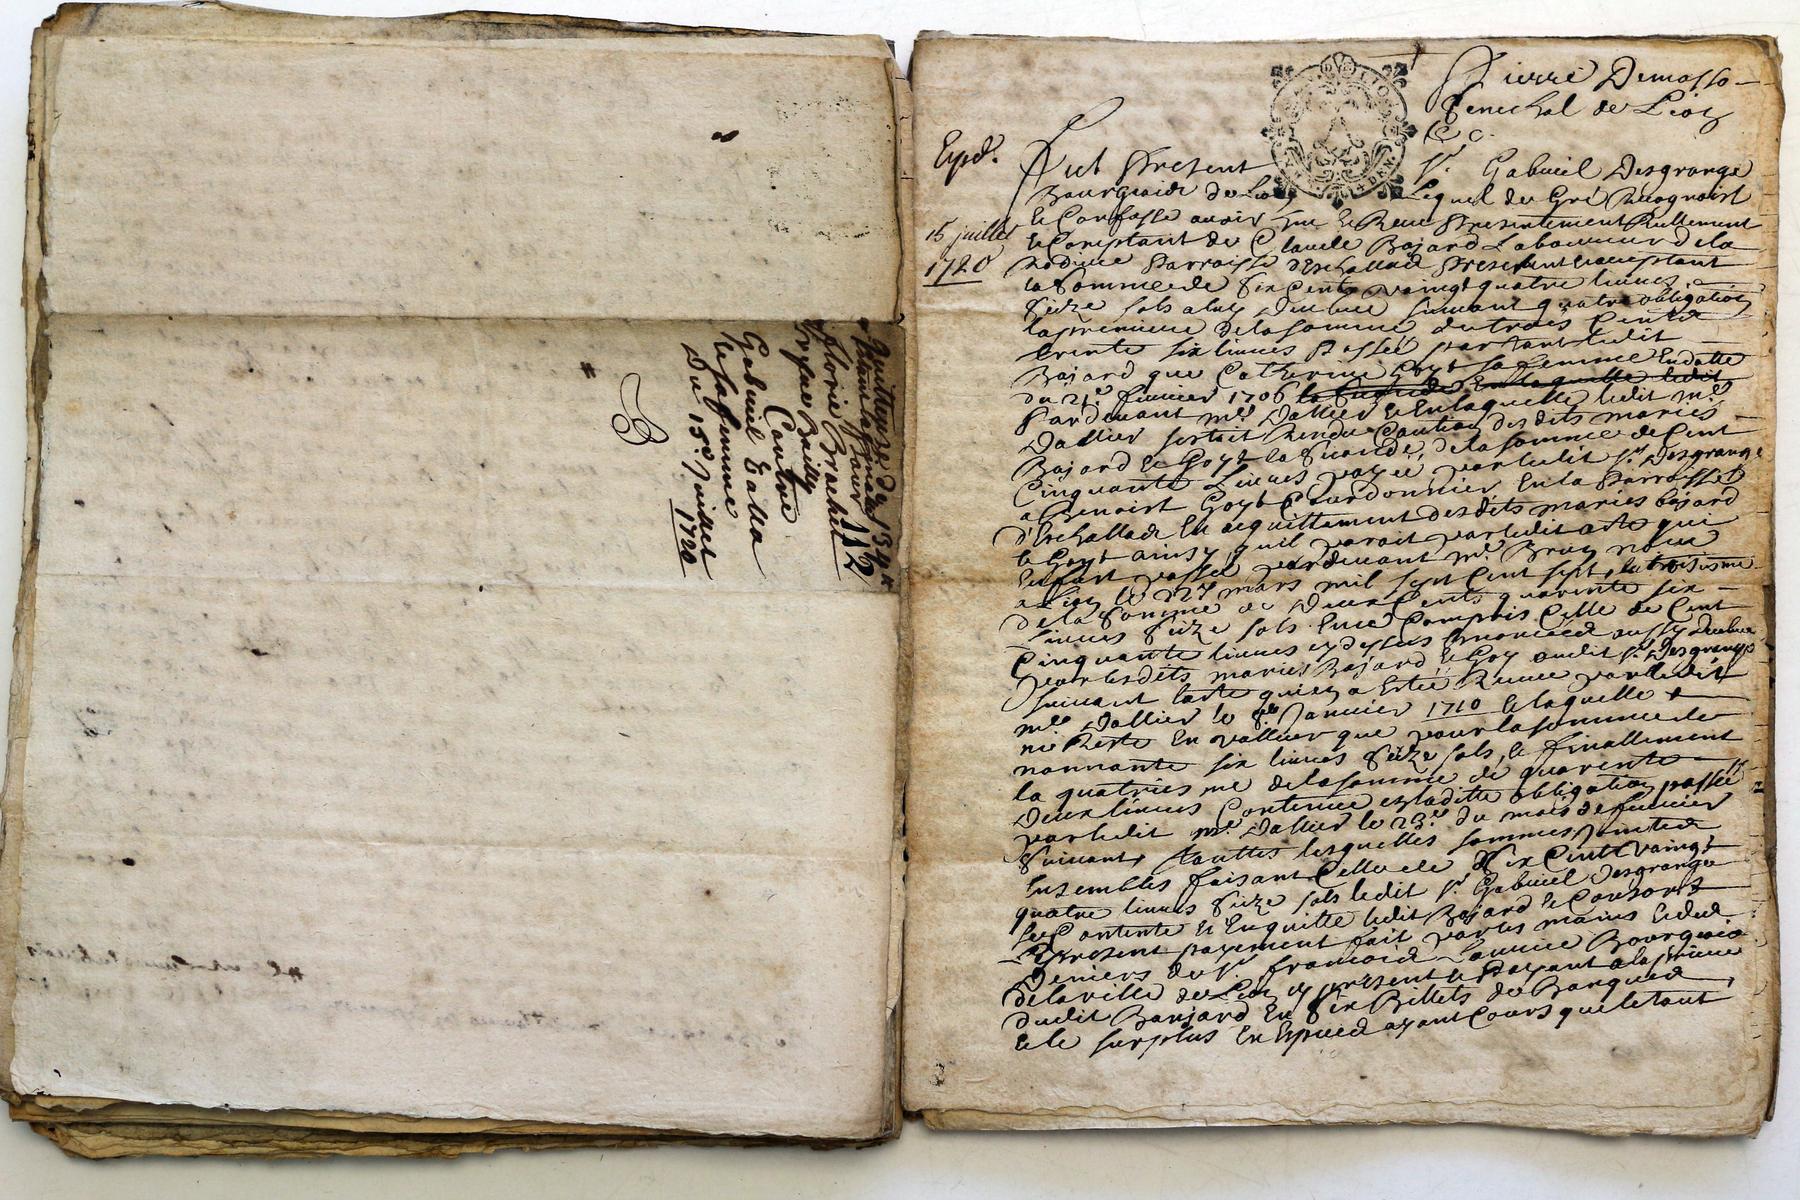 Quittance de 134ᵗᵗ
pour
florie Brachet 112
Contre
Gabriel Balla
& sa femme
Du 15ᵉ Juillet
1720
Pierre Demasso
Senechal de Lion
&c.
Expé.
15 juillet
1720
Fut Present Sʳ. Gabriel Desgrange
Bourgeois de Lion Lequel de Gré Recognoist
& Confesse avoir eu & Receu Presentement Reellement
& Comptant de Claude Bajard Laboureur de la
Parroisse d'Eschallas Present & acceptant
la Somme de Six Cents vaingt quatre livres
Seize sols a luy Deubue suivant quatre obligations
la premiere de la somme de trois Cents
trente six livres Passée par tant ledit
Bajard que Catherine Goyt sa femme En datte
du 21ᵉ fevrier 1706 la Seconde En laquelle ledit
Pardevant mᵉ Dallier & En laquelle ledit mᵉ
Dallier sestoit Rendu Caution desdits mariés
Bajard & Goyt la Seconde, de la somme de Cent
Cinquante Livres payée par ledit Sʳ. Desgrange
a Benoist Goyt Courdonnier En la Parroisse
d'Eschallas En acquittement desdits mariés bajard
& Goyt ainsy quil paroit par ledit acte qui
En fust passé pardevant mᵉ Bruy
a Lion le 22ᵉ mars mil sept Cent sept, la troisieme
de la somme de Deux Cents quarente six
livres Seize sols En ce Compris Celle de Cent
Cinquante livres cy dessus Enoncée aussy Deubue
par lesdits mariés Bajard & Goy audit Sʳ. Desgrange
suivant lacte qui en a Esté Receu par ledit
mᵉ Dallier le 8ᵉ Janvier 1710 & laquelle
ne Reste En valleur que pour la somme de
nonnante six livres Seize sols, & finallement
la quatriesme de la somme de quarente
Deux livres Contenue en laditte obligation passée
par ledit mᵉ Dallier le 23ᵉ du mois de fevrier
Suivant, touttes lesquelles sommes jointes
Ensembles faisant Celle de Six Cents vaingt
quatre livres Seize sols ledit Sʳ Gabriel Desgrange
se Contente & En quitte ledit Bajard & Consorts
Le present payement fait par les mains & des
Deniers de Sʳ. francois Bourgeois
de la ville de Lion cy present & Payant a la priere
dudit Banjard En Six Billets de Banque
& le surplus En Especes ayant Cours que letout